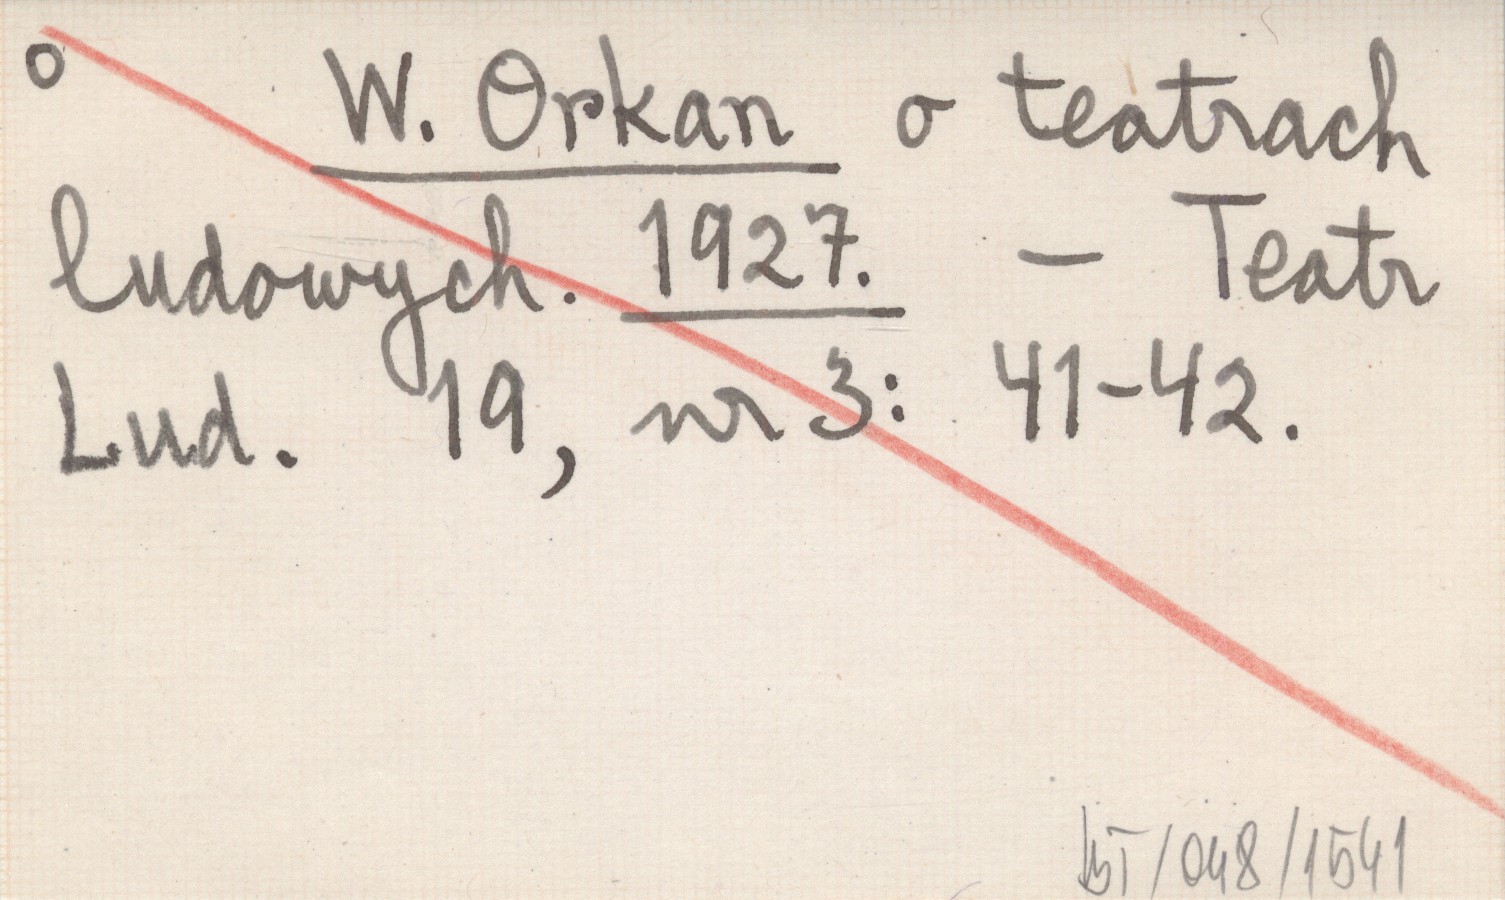 o W. Orkan o teatrach
ludowych. 1927. – Teatr
Lud. 19, nr 3: 41-42.
/048/1541